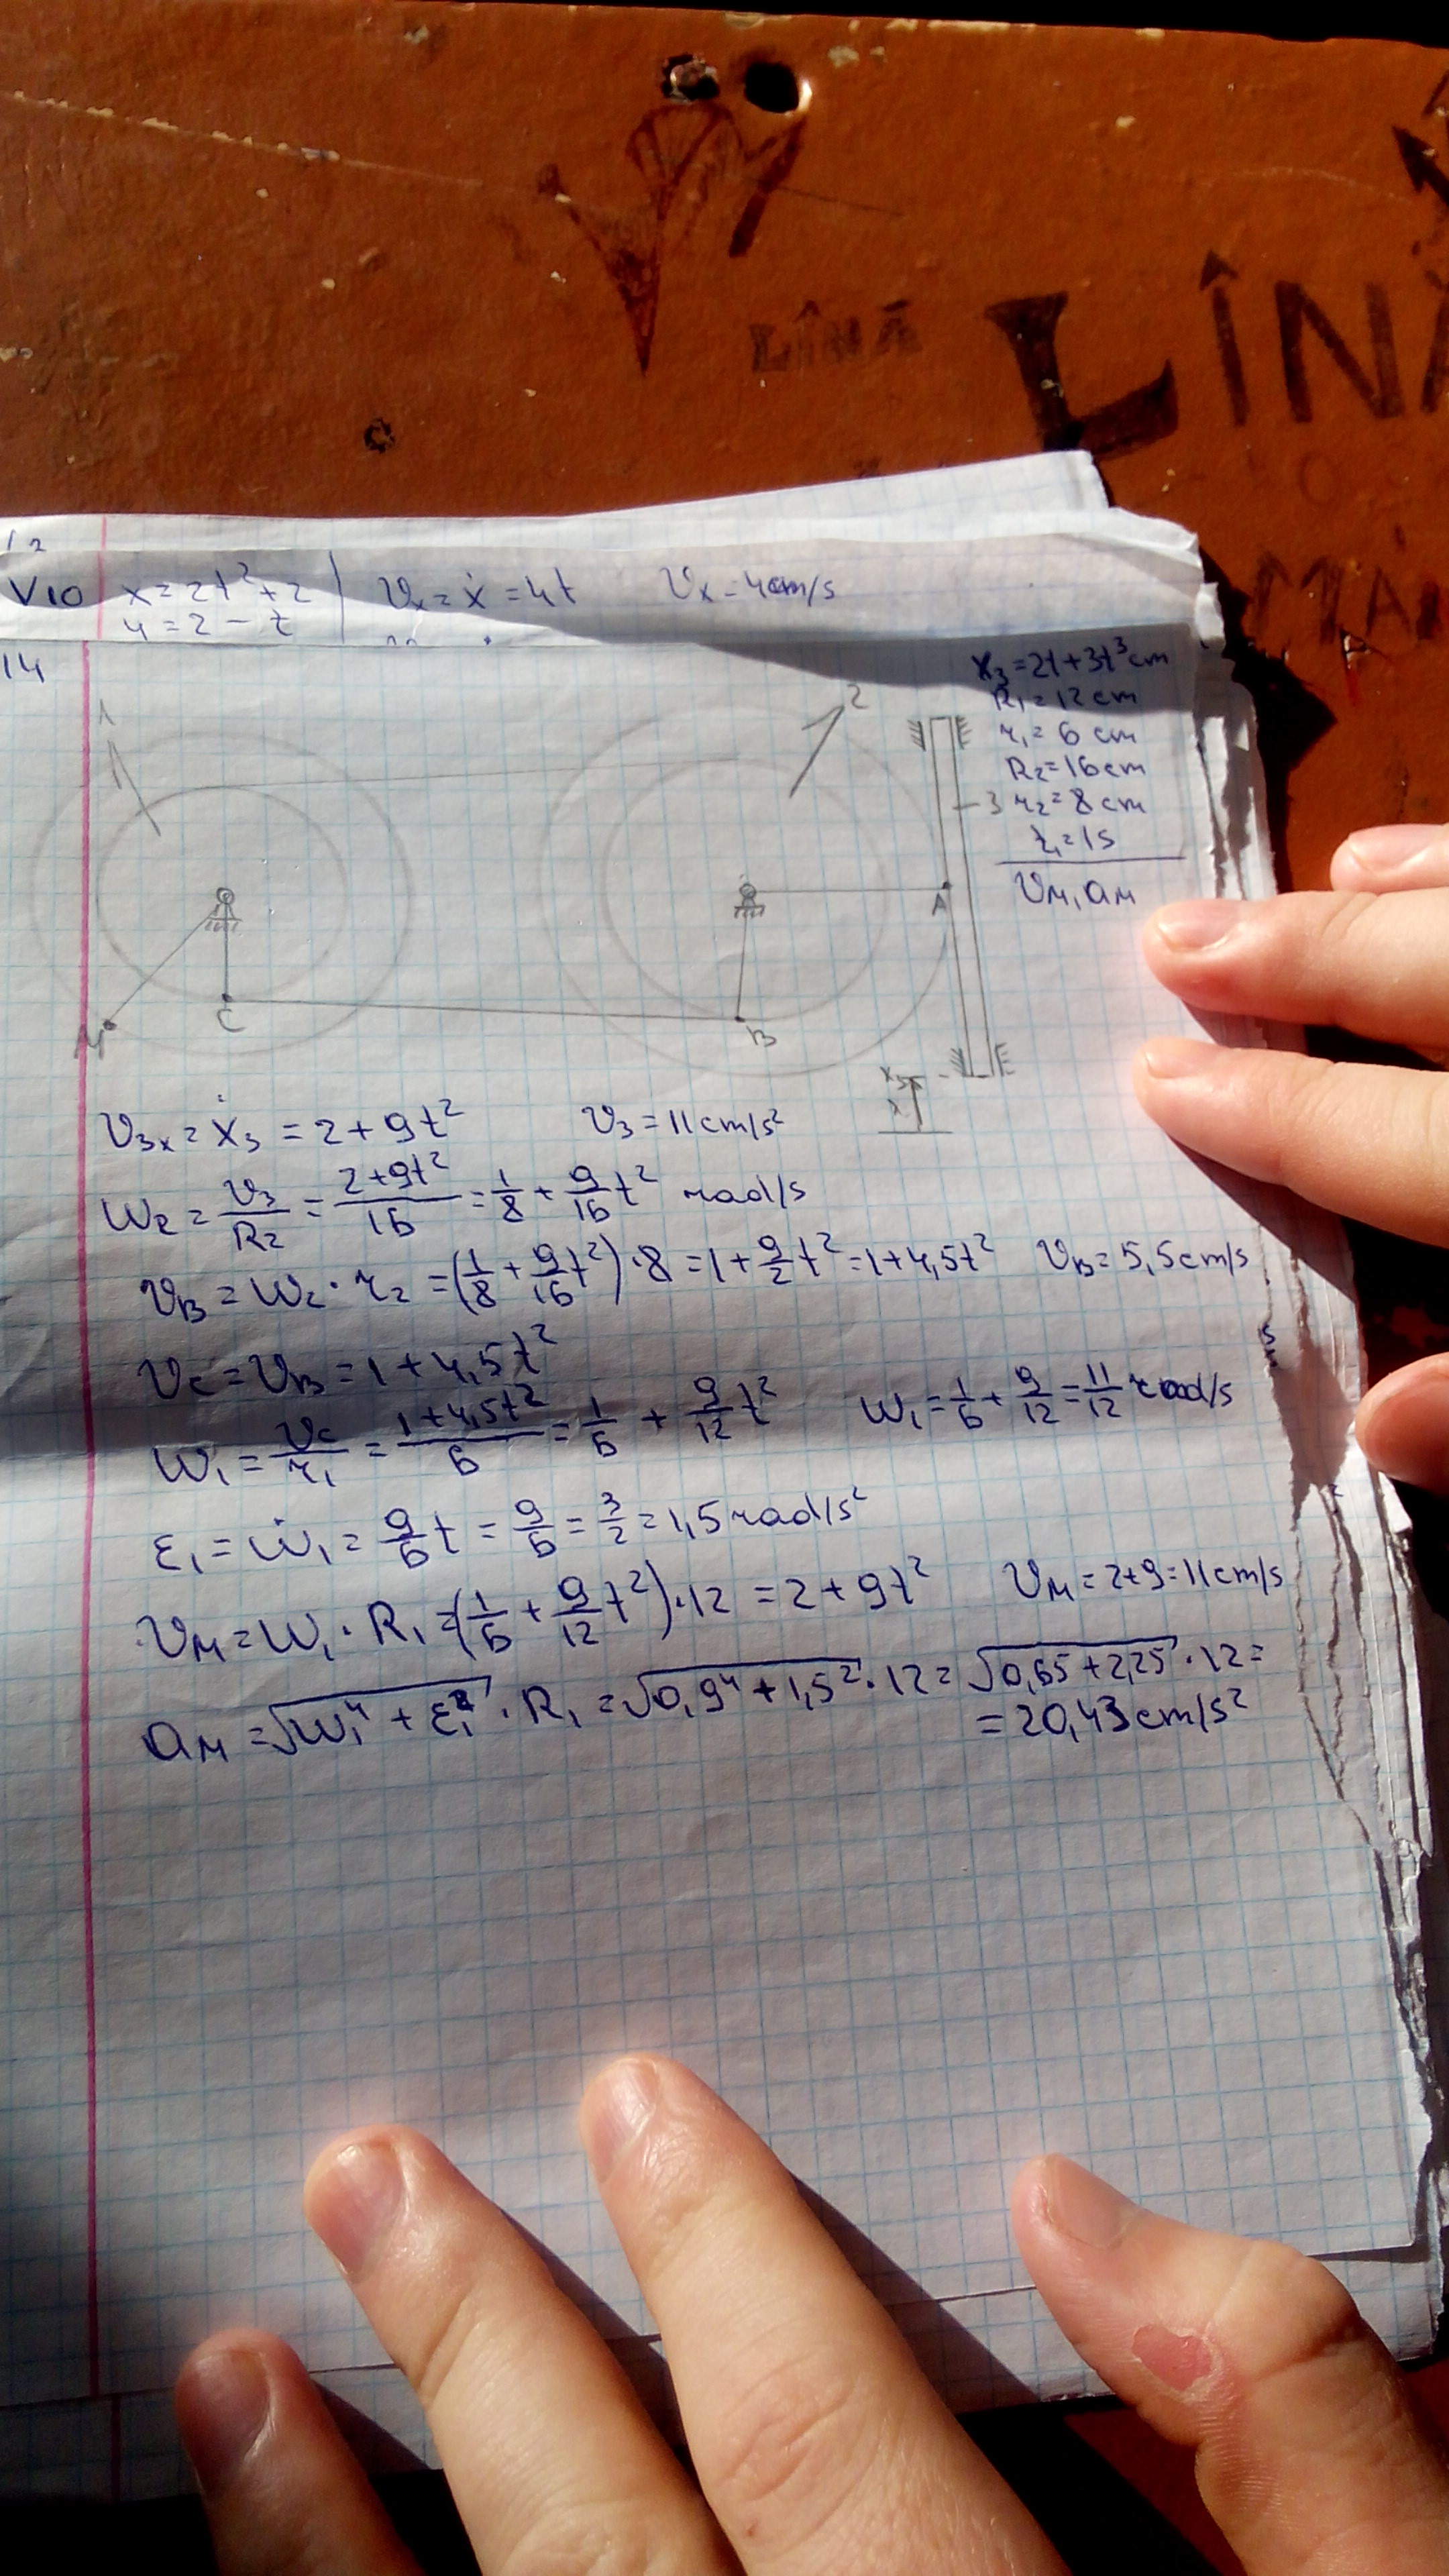 LÎNĂ
LÎNĂ
MA
V10 x=2t²+2 vₓ=ẋ=4t vₓ=4cm/s
y=2-t
14
x₃=2t+3t³cm
R₁=12cm
r₁=6 cm
R₂=16cm
r₂=8 cm
t₁=1s
v_M, a_M
1
2
3
A
M
C
B
x₃
v₃ₓ=ẋ₃=2+9t² v₃=11cm/s²
ω₂=v₃/R₂=(2+9t²)/16=1/8+9/16t² rad/s
v_B=ω₂·r₂=(1/8+9/16t²)·8=1+9/2t²=1+4,5t² v_B=5,5cm/s
v_C=v_B=1+4,5t²
ω₁=v_C/r₁=(1+4,5t²)/6=1/6+9/12t² ω₁=1/6+9/12=11/12 rad/s
ε₁=ω̇₁=9/6t=9/6=3/2=1,5rad/s²
v_M=ω₁·R₁=(1/6+9/12t²)·12=2+9t² v_M=2+9=11cm/s
a_M=√(ω₁⁴+ε₁²)·R₁=√(0,9⁴+1,5²)·12=√(0,65+2,25)·12=
=20,43cm/s²